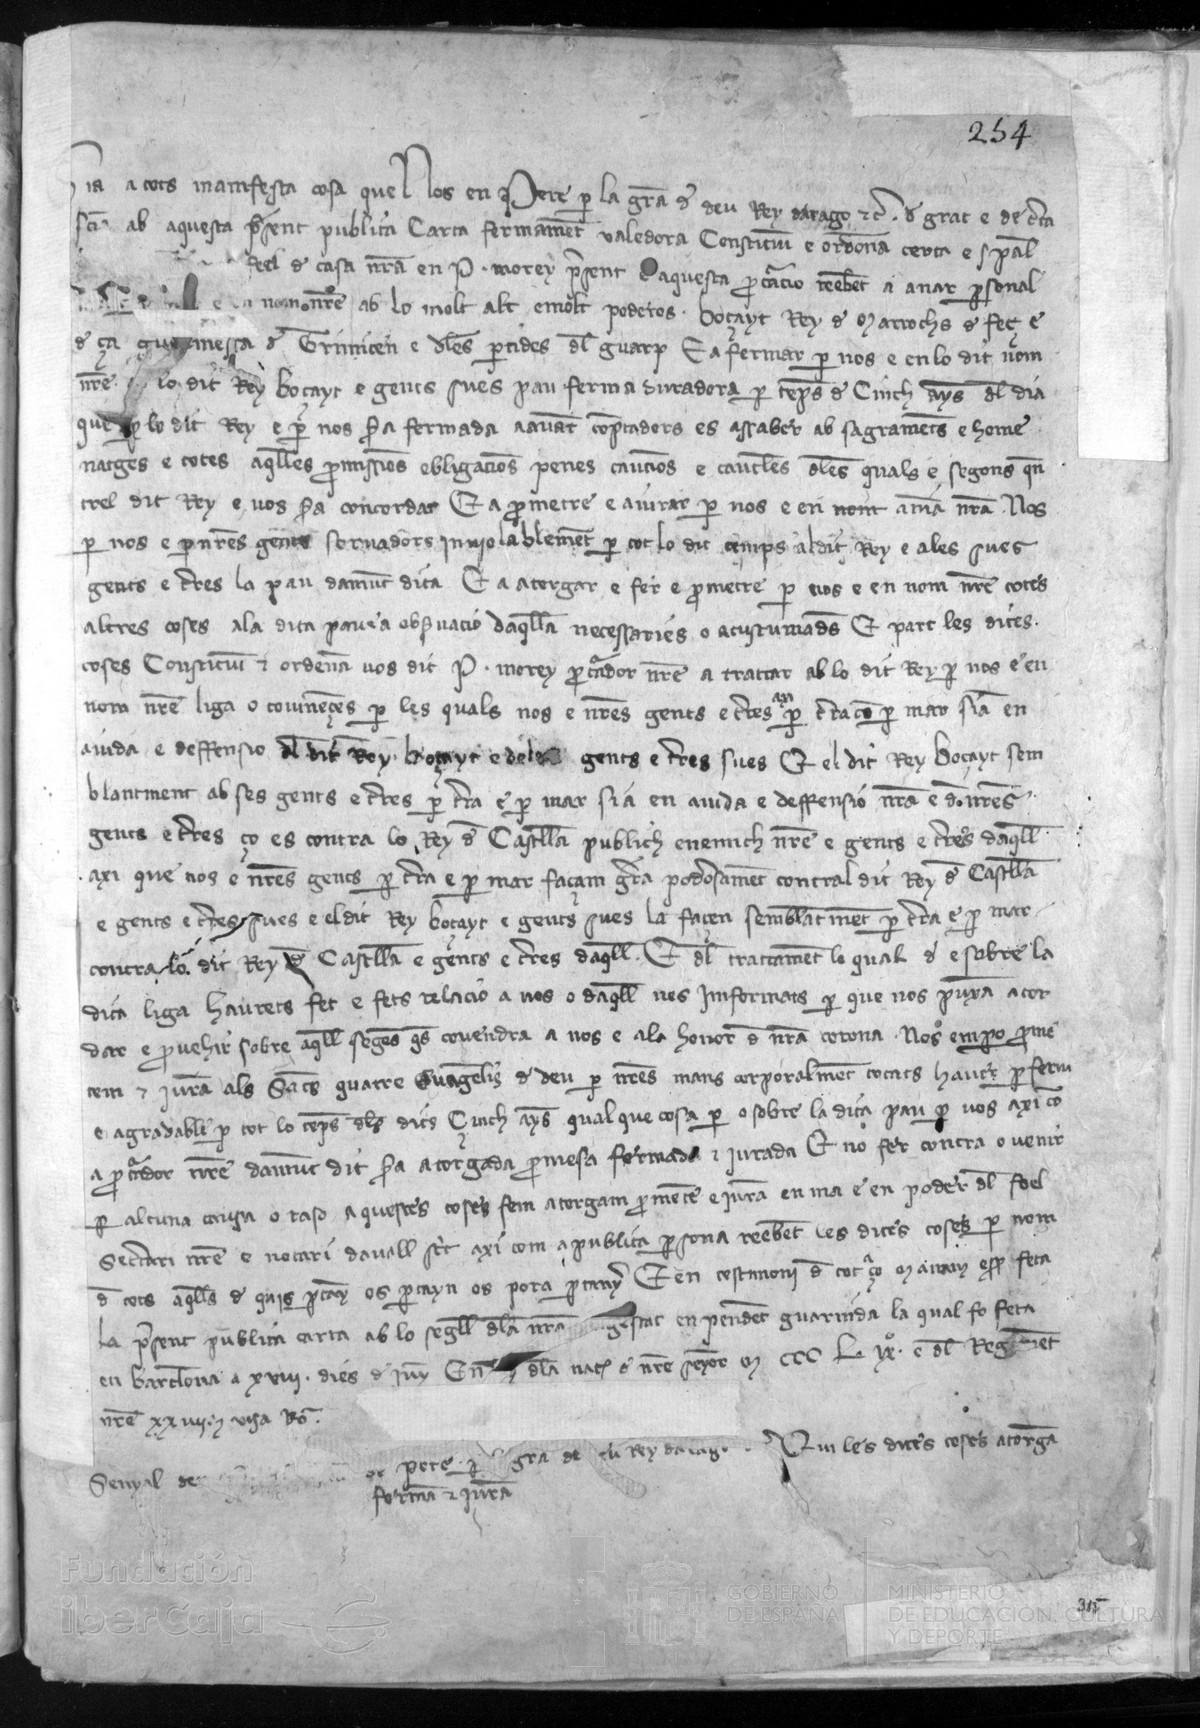 254
Sia a tots manifesta cosa que Nos en Pere p la gra de deu Rey darago etc. de grat e de certa
scia ab aquesta psent publica Carta fermamet valedora Constituim e ordonam certa e spal
feel de casa nra en P. morey psent e aquesta pcuracio reebet a anar psonal
e en nom nre ab lo molt alt e molt poderos. boçayt Rey de Marrochs de feç e
de ça de Trimicen e dles partides del guarp E a fermar p nos e en lo dit nom
nre lo dit Rey boçayt e gents sues pau ferma duradora p temps de Cinch ayns dl dia
que p lo dit Rey e p nos sia fermada a avant comptadors es assaber ab sagraments e home
natges e totes aqlles pmissios obligacios penes caucios e cauteles dles quals e segons qn
trel dit Rey e vos sia concordat E a pmetre e a jurar p nos e en nom e anima nra. Nos
p nos e p nres gents servadors inviolablement p tot lo dit temps al dit Rey e a les sues
gents e terres la pau damunt dita E a atorgar e fer e pmetre p nos e en nom nre totes
altres coses a la dita pau e a observacio daqlla necessaries o acustumades E part les dites.
coses Constituim e ordenam vos dit P. morey pcurador nre a tractar ab lo dit Rey p nos e en
nom nre liga o covinençes p les quals nos e nres gents e terres axi p terra co p mar siam en
aiuda e deffensio dl dit Rey boçayt e de les gents e terres sues E el dit Rey boçayt sem
blantment ab ses gents e terres p terra e p mar sia en aiuda e deffensio nra e d nres
gents e terres ço es contra lo Rey de Castlla publich enemich nre e gents e terres daqll
axi que nos e nres gents p terra e p mar façam guerra poderosament contral dit Rey de Castlla
e gents e terres sues e el dit Rey boçayt e gents sues la façen semblantment p terra e p mar
contra lo dit Rey de Castlla e gents e terres daqll. E dl tractament lo qual de e sobre la
dita liga haurets fet e fets relacio a nos o daqll nos informats p que nos puxam acor
dar e pvehir sobre aqll segons qs covendra a nos e a la honor de nra corona. Nos empo pme
tem e juram als Sants quatre Evangelis de deu p nres mans corporalment tocats haver p ferm
e agradable p tot lo temps dls dits Cinch ayns qualque cosa p o sobre la dita pau p vos axi co
a pcurador nre damunt dit sia atorgada pmesa fermada e jurada E no fer contra o venir
p alcuna causa o raso aquestes coses fem atorgam pmetem e juram en ma e en poder dl feel
Secretari nre e notari davall scrit axi com a publica psona reebent les dites coses p nom
de tots aqlls de quis ptany os ptayn os pora ptanyer E en testimoni de tot ço manam esser feta
la psent publica carta ab lo segell dla nra magestat en pendent guarnida la qual fo feta
en barcelona a xviii. dies de juny En lay dla nat de nre senyor M CCC L ix. e dl Regnament
nre xxiiii. visa Ro.
Senyal den pere p la gra de deu Rey darago Qui les dites coses atorgam
fermam e juram
315
Fundación
iberCaja
GOBIERNO
DE ESPAÑA
MINISTERIO
DE EDUCACIÓN, CULTURA
Y DEPORTE